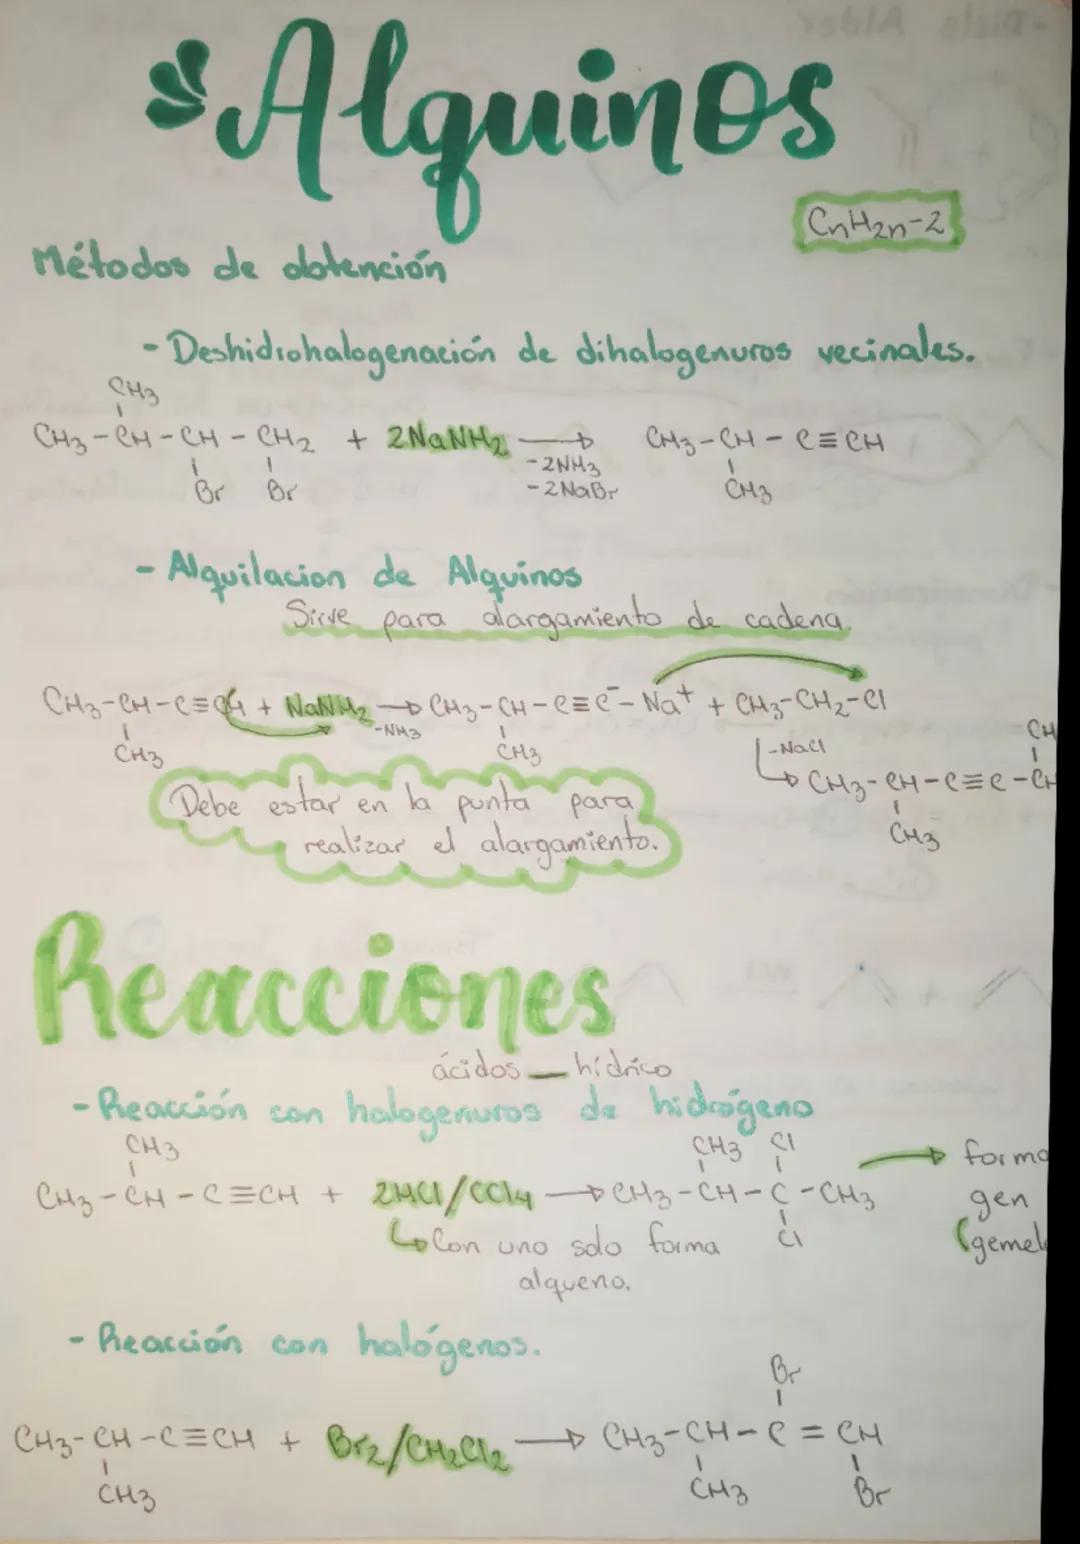 Alquinos
CnH2n-2
Métodos de obtención
- Deshidrohalogenación de dihalogenuros vecinales.
CH3
CH3-CH-CH-CH2 + 2NaNH2 → CH3-CH-C≡CH
-2NH3
Br Br -2NaBr CH3
- Alquilacion de Alquinos
Sirve para alargamiento de cadena.
CH3-CH-C≡CH + NaNH2 → CH3-CH-C≡C⁻-Na⁺ + CH3-CH2-Cl
-NH3
CH3 CH3 -NaCl CH
→ CH3-CH-C≡C-CH
CH3
Debe estar en la punta para
realizar el alargamiento.
Reacciones
ácidos — hídrico
- Reacción con halogenuros de hidrógeno
CH3 CH3 Cl
CH3-CH-C≡CH + 2HCl/CCl4 → CH3-CH-C-CH3 → forma
Cl gen
↳ Con uno solo forma (gemel
alqueno.
- Reacción con halógenos.
Br
CH3-CH-C≡CH + Br2/CH2Cl2 → CH3-CH-C=CH
CH3 CH3 Br